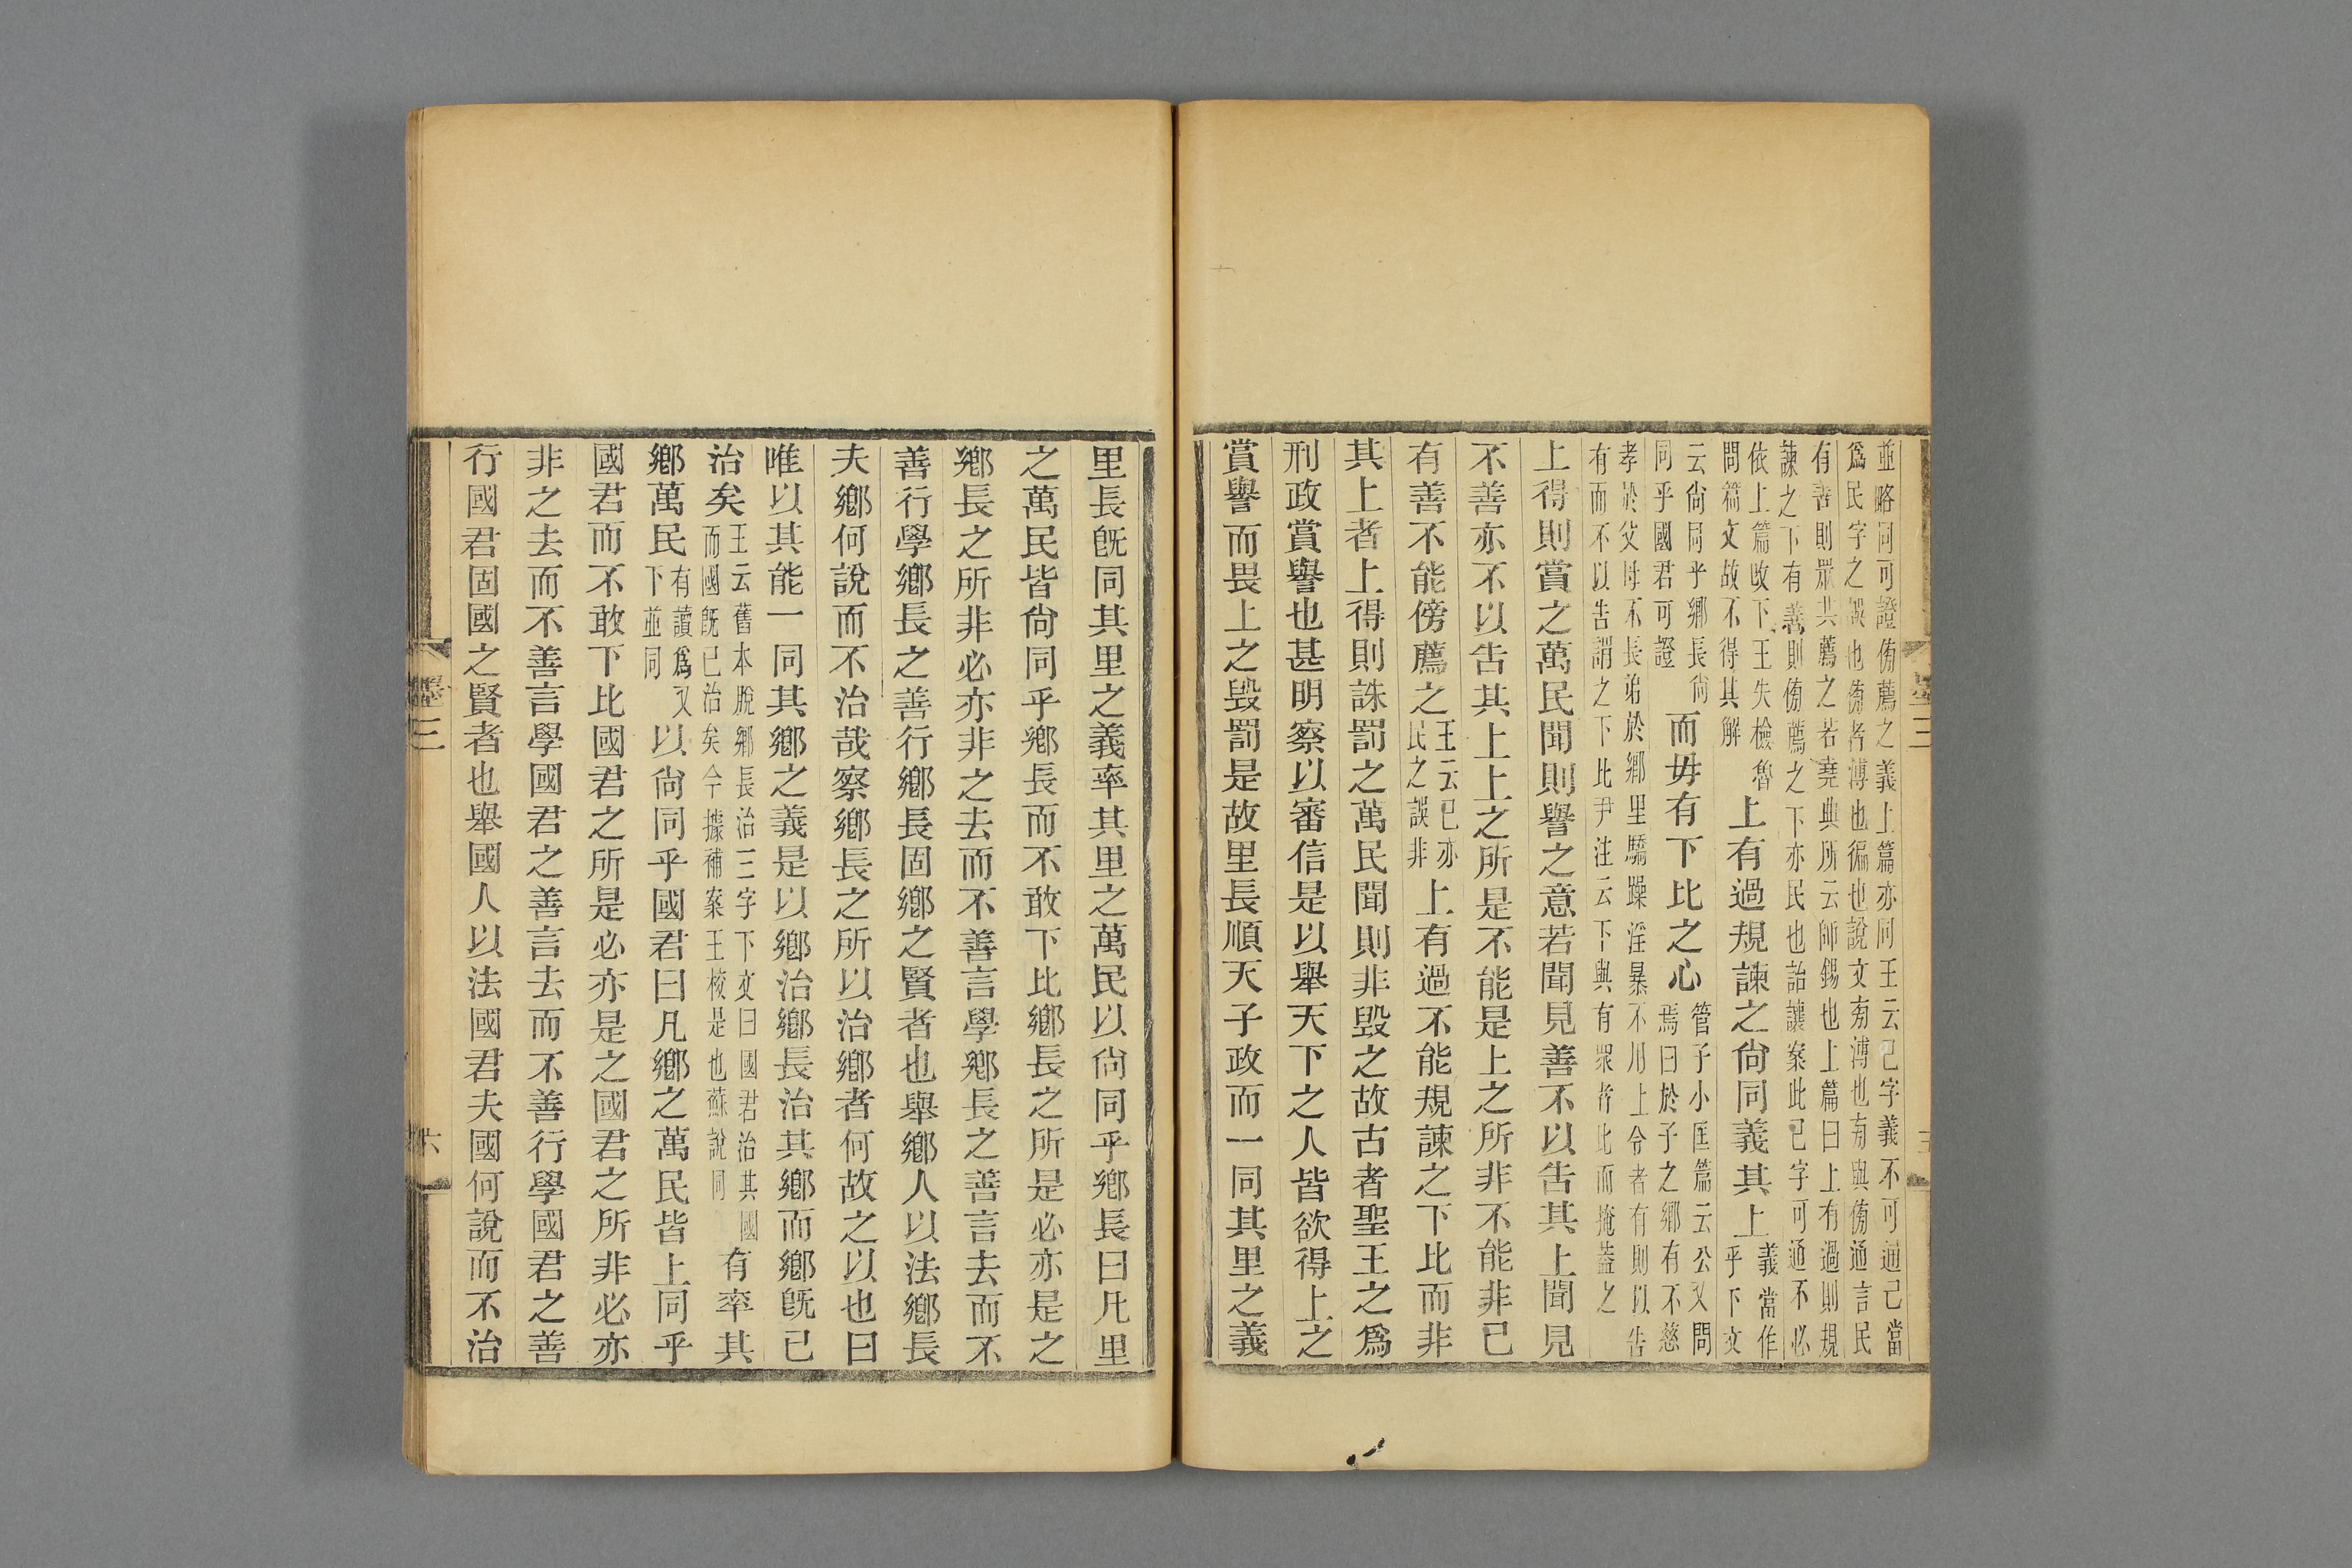 並略同可證傍薦之義上篇亦同王云己字義不可通己當
爲民字之誤也傍者溥也徧也說文㫄溥也㫄與傍通言民
有善則眾共薦之若堯典所云師錫也上篇曰上有過則規
諫之下有善則傍薦之下亦民也詒讓案此己字可通不必
依上篇改下王失檢魯問篇文故不得其解上有過規諫之尚同義其上義當作乎下文
云尚同乎鄉長尚同乎國君可證而毋有下比之心管子小匡篇云公又問焉曰於子之鄉有不慈
孝於父母不長弟於鄉里驕躁淫暴不用上令者有則以告
有而不以告謂之下比尹注云下與有眾者比而掩蓋之
上得則賞之萬民聞則譽之意若聞見善不以告其上聞見
不善亦不以告其上上之所是不能是上之所非不能非己
有善不能傍薦之王云己亦民之誤非上有過不能規諫之下比而非
其上者上得則誅罰之萬民聞則非毀之故古者聖王之爲
刑政賞譽也甚明察以審信是以舉天下之人皆欲得上之
賞譽而畏上之毀罰是故里長順天子政而一同其里之義
里長既同其里之義率其里之萬民以尚同乎鄉長曰凡里
之萬民皆尚同乎鄉長而不敢下比鄉長之所是必亦是之
鄉長之所非必亦非之去而不善言學鄉長之善言去而不
善行學鄉長之善行鄉長固鄉之賢者也舉鄉人以法鄉長
夫鄉何說而不治哉察鄉長之所以治鄉者何故之以也曰
唯以其能一同其鄉之義是以鄉治鄉長治其鄉而鄉既已
治矣王云舊本脫鄉長治三字下文曰國君治其國而國既已治矣今據補案王校是也蘇說同有率其
鄉萬民有讀爲又下並同以尚同乎國君曰凡鄉之萬民皆上同乎
國君而不敢下比國君之所是必亦是之國君之所非必亦
非之去而不善言學國君之善言去而不善行學國君之善
行國君固國之賢者也舉國人以法國君夫國何說而不治
墨三
六